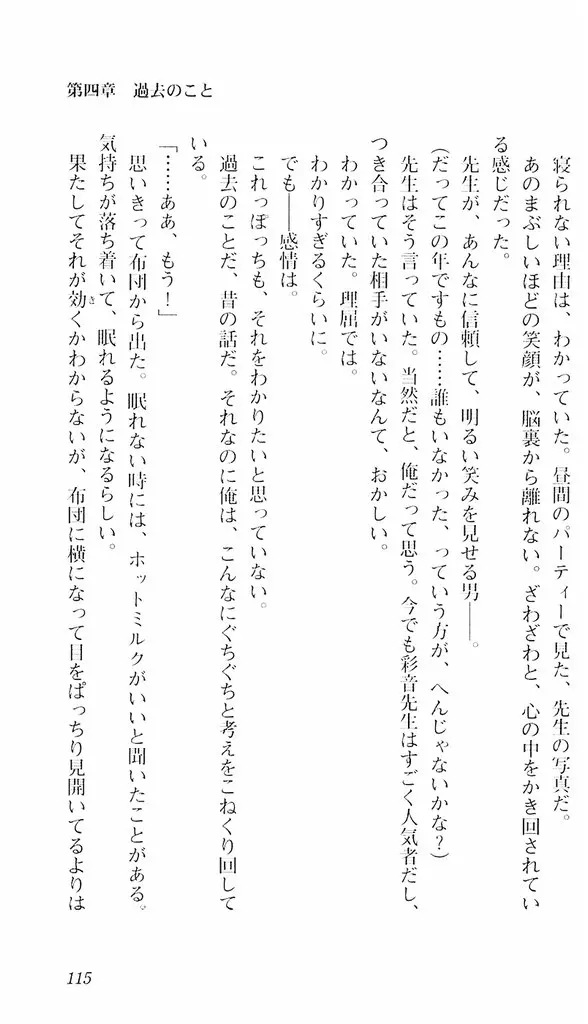 第四章　過去のこと
寝られない理由は、わかっていた。昼間のパーティーで見た、先生の写真だ。
あのまぶしいほどの笑顔が、脳裏から離れない。ざわざわと、心の中をかき回されてい
る感じだった。
先生が、あんなに信頼して、明るい笑みを見せる男――。
（だってこの年ですもの……誰もいなかった、っていう方が、へんじゃないかな？）
先生はそう言っていた。当然だと、俺だって思う。今でも彩音先生はすごく人気者だし、
つき合っていた相手がいないなんて、おかしい。
わかっていた。理屈では。
わかりすぎるくらいに。
でも――感情は。
これっぽっちも、それをわかりたいと思っていない。
過去のことだ、昔の話だ。それなのに俺は、こんなにぐちぐちと考えをこねくり回して
いる。
「……ああ、もう！」
思いきって布団から出た。眠れない時には、ホットミルクがいいと聞いたことがある。
気持ちが落ち着いて、眠れるようになるらしい。
果たしてそれが効くかわからないが、布団に横になって目をぱっちり見開いてるよりは
き
115